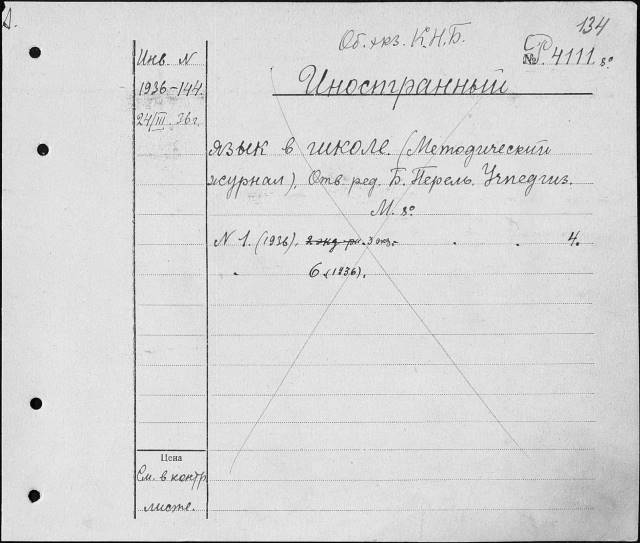 134
Об. экз. К.Н.Б.
Инв. N
№ 4111. 8°
1936-144.
Иностранный
24/III. 36 г.
язык в школе. (Методический
журнал). Отв. ред. Б. Перель. Учпедгиз.
М. 8°
N 1. (1936). 3 экз. 4.
6 (1936).
Цена
См. в контр.
листе.